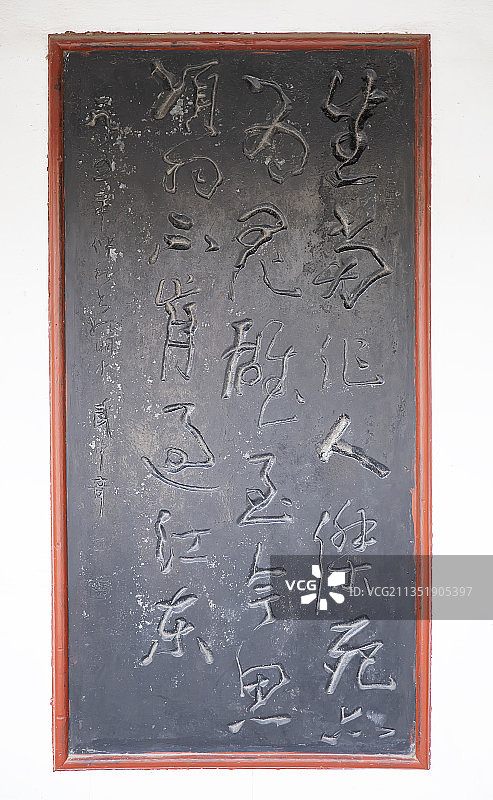 生当作人傑死亦
为鬼雄至今思
项羽不肯过江东
VCG
VCG211351905397